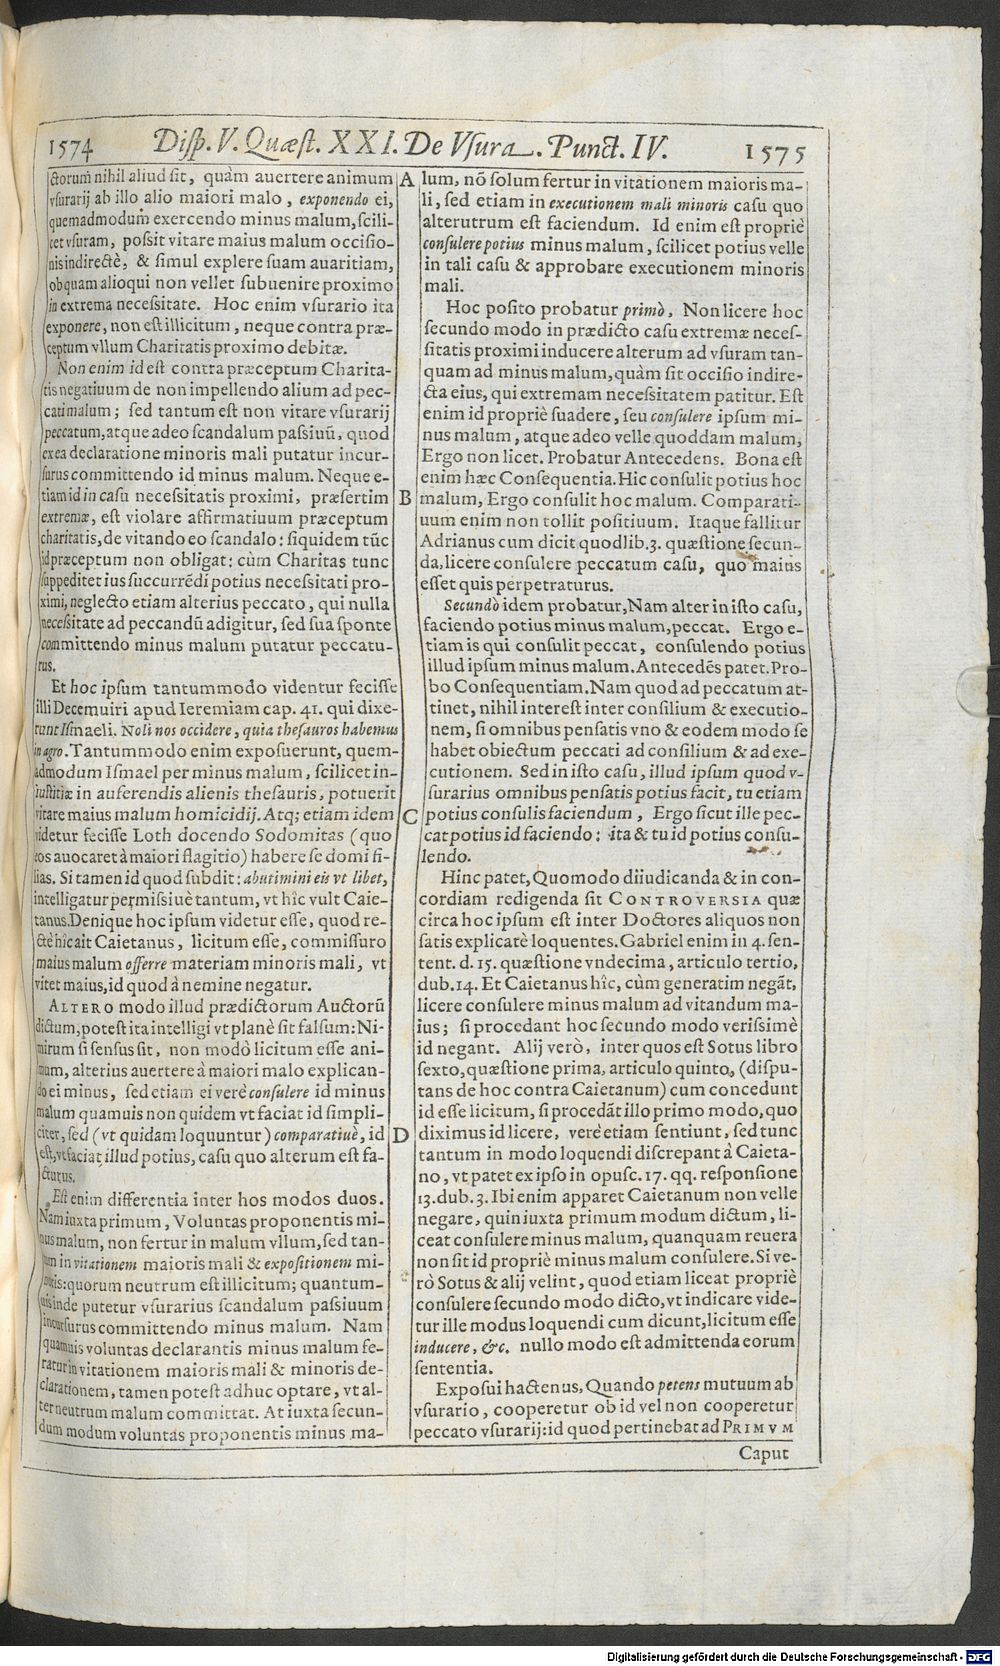 1574 Disp. V. Quæst. XXI. De Vsura. Punct. IV. 1575
ctorum nihil aliud sit, quàm auertere animum
vsurarij ab illo alio maiori malo, exponendo ei,
quemadmodum exercendo minus malum, scili-
cet vsuram, possit vitare maius malum occisio-
nis indirectè, & simul explere suam auaritiam,
ob quam alioqui non vellet subuenire proximo
in extrema necessitate. Hoc enim vsurario ita
exponere, non est illicitum, neque contra præ-
ceptum vllum Charitatis proximo debitæ.
Non enim id est contra præceptum Charita-
tis negatiuum de non impellendo alium ad pec-
cati malum; sed tantum est non vitare vsurarij
peccatum, atque adeo scandalum passiuũ, quod
ex ea declaratione minoris mali putatur incur-
surus committendo id minus malum. Neque e-
tiam id in casu necessitatis proximi, præsertim
extremæ, est violare affirmatiuum præceptum
charitatis, de vitando eo scandalo: siquidem tũc
id præceptum non obligat: cùm Charitas tunc
suppeditet ius succurrẽdi potius necessitati pro-
ximi, neglecto etiam alterius peccato, qui nulla
necessitate ad peccandũ adigitur, sed sua sponte
committendo minus malum putatur peccatu-
rus.
Et hoc ipsum tantummodo videntur fecisse
illi Decemuiri apud Ieremiam cap. 41. qui dixe-
runt Ismaeli. Noli nos occidere, quia thesauros habemus
in agro. Tantummodo enim exposuerunt, quem-
admodum Ismael per minus malum, scilicet in-
iustitiæ in auferendis alienis thesauris, potuerit
vitare maius malum homicidij. Atq; etiam idem
videtur fecisse Loth docendo Sodomitas (quo
eos auocaret à maiori flagitio) habere se domi fi-
lias. Si tamen id quod subdit: abutimini eis vt libet,
intelligatur permissiuè tantum, vt hîc vult Caie-
tanus. Denique hoc ipsum videtur esse, quod re-
ctè hîc ait Caietanus, licitum esse, commissuro
maius malum offerre materiam minoris mali, vt
vitet maius, id quod à nemine negatur.
ALTERO modo illud prædictorum Auctorũ
dictum, potest ita intelligi vt planè sit falsum: Ni-
mirum si sensus sit, non modò licitum esse ani-
mum, alterius auertere à maiori malo explican-
do ei minus, sed etiam ei verè consulere id minus
malum quamuis non quidem vt faciat id simpli-
citer, sed (vt quidam loquuntur) comparatiuè, id
est, vt faciat illud potius, casu quo alterum est fa-
cturus.
Est enim differentia inter hos modos duos.
Nam iuxta primum, Voluntas proponentis mi-
nus malum, non fertur in malum vllum, sed tan-
tum in vitationem maioris mali & expositionem mi-
noris: quorum neutrum est illicitum; quantum-
uis inde putetur vsurarius scandalum passiuum
incursurus committendo minus malum. Nam
quamuis voluntas declarantis minus malum fe-
ratur in vitationem maioris mali & minoris de-
clarationem, tamen potest adhuc optare, vt al-
ter neutrum malum committat. At iuxta secun-
dum modum voluntas proponentis minus ma-
A
B
C
D
lum, nõ solum fertur in vitationem maioris ma-
li, sed etiam in executionem mali minoris casu quo
alterutrum est faciendum. Id enim est propriè
consulere potius minus malum, scilicet potius velle
in tali casu & approbare executionem minoris
mali.
Hoc posito probatur primò, Non licere hoc
secundo modo in prædicto casu extremæ neces-
sitatis proximi inducere alterum ad vsuram tan-
quam ad minus malum, quàm sit occisio indire-
cta eius, qui extremam necessitatem patitur. Est
enim id propriè suadere, seu consulere ipsum mi-
nus malum, atque adeo velle quoddam malum,
Ergo non licet. Probatur Antecedens. Bona est
enim hæc Consequentia. Hic consulit potius hoc
malum, Ergo consulit hoc malum. Comparati-
uum enim non tollit positiuum. Itaque fallitur
Adrianus cum dicit quodlib. 3. quæstione secun-
da, licere consulere peccatum casu, quo maius
esset quis perpetraturus.
Secundò idem probatur, Nam alter in isto casu,
faciendo potius minus malum, peccat. Ergo e-
tiam is qui consulit peccat, consulendo potius
illud ipsum minus malum. Antecedẽs patet. Pro-
bo Consequentiam. Nam quod ad peccatum at-
tinet, nihil interest inter consilium & executio-
nem, si omnibus pensatis vno & eodem modo se
habet obiectum peccati ad consilium & ad exe-
cutionem. Sed in isto casu, illud ipsum quod v-
surarius omnibus pensatis potius facit, tu etiam
potius consulis faciendum, Ergo sicut ille pec-
cat potius id faciendo: ita & tu id potius consu-
lendo.
Hinc patet, Quomodo diiudicanda & in con-
cordiam redigenda sit CONTROVERSIA quæ
circa hoc ipsum est inter Doctores aliquos non
satis explicatè loquentes. Gabriel enim in 4. sen-
tent. d. 15. quæstione vndecima, articulo tertio,
dub. 14. Et Caietanus hîc, cùm generatim negãt,
licere consulere minus malum ad vitandum ma-
ius; si procedant hoc secundo modo verissimè
id negant. Alij verò, inter quos est Sotus libro
sexto, quæstione prima, articulo quinto, (dispu-
tans de hoc contra Caietanum) cum concedunt
id esse licitum, si procedãt illo primo modo, quo
diximus id licere, verè etiam sentiunt, sed tunc
tantum in modo loquendi discrepant à Caieta-
no, vt patet ex ipso in opusc. 17. qq. responsione
13. dub. 3. Ibi enim apparet Caietanum non velle
negare, quin iuxta primum modum dictum, li-
ceat consulere minus malum, quanquam reuera
non sit id propriè minus malum consulere. Si ve-
rò Sotus & alij velint, quod etiam liceat propriè
consulere secundo modo dicto, vt indicare vide-
tur ille modus loquendi cum dicunt, licitum esse
inducere, &c. nullo modo est admittenda eorum
sententia.
Exposui hactenus, Quando petens mutuum ab
vsurario, cooperetur ob id vel non cooperetur
peccato vsurarij: id quod pertinebat ad PRIMVM
Caput
Digitalisierung gefördert durch die Deutsche Forschungsgemeinschaft - DFG